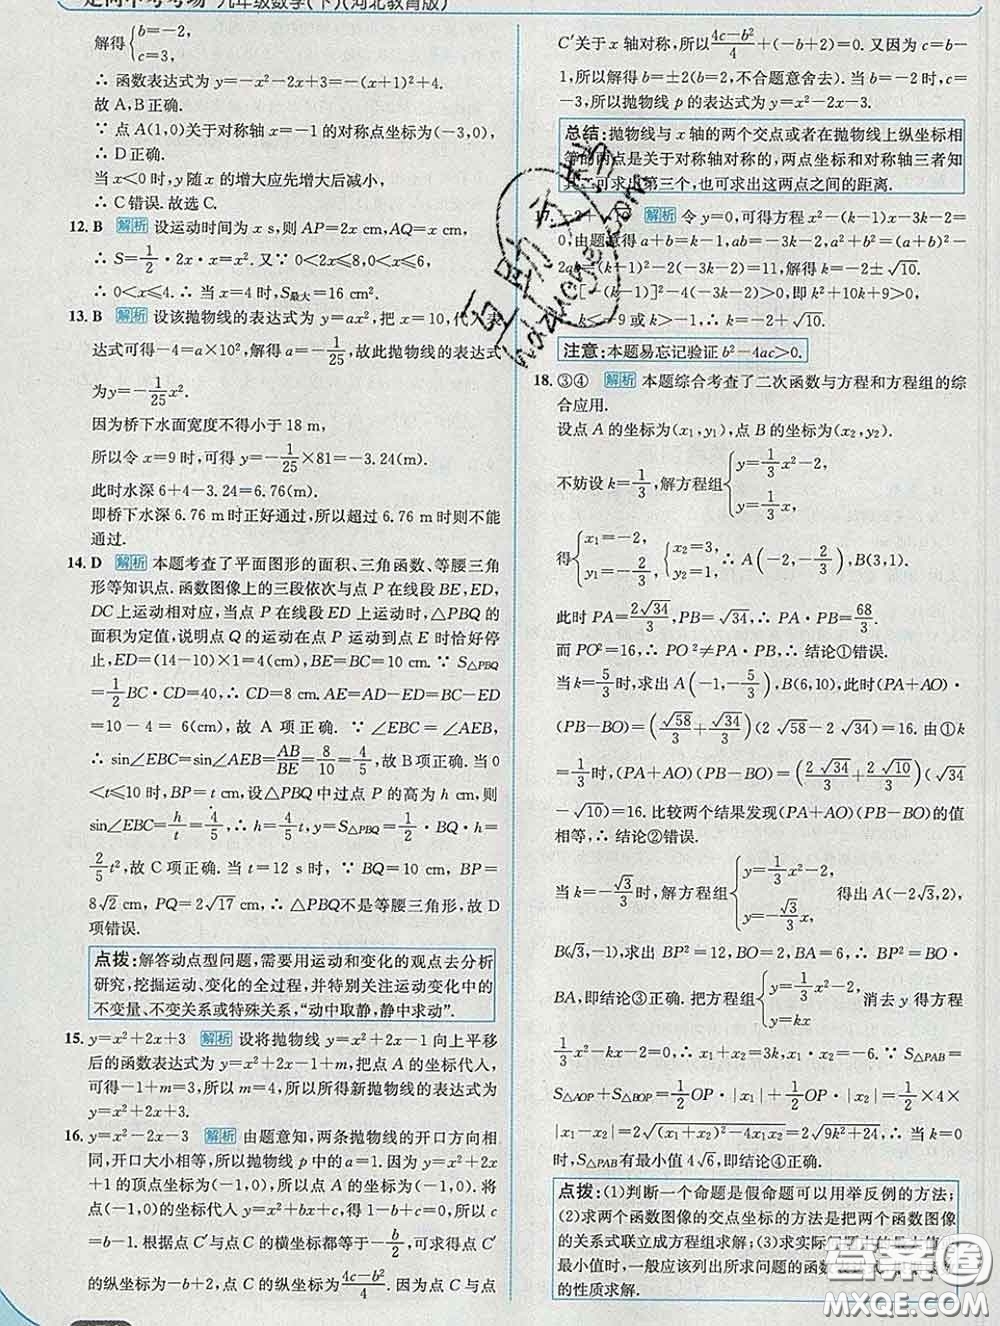 走向中考考场 九年级数学(下)(河北教育版)
解得{b=-2, c=3,
∴ 函数表达式为 y=-x²-2x+3=-(x+1)²+4.
故 A,B正确.
∵ 点 A(1,0)关于对称轴 x=-1 的对称点坐标为(-3,0),
∴ D正确.
当 x<0 时,y 随 x 的增大应先增大后减小,
∴ C错误. 故选 C.
12. B 解析 设运动时间为 x s,则 AP=2x cm,AQ=x cm,
∴ S=1/2·2x·x=x². 又∵ 0<2x≤8,0<x≤6,
∴ 0<x≤4. ∴ 当 x=4 时,S最大=16 cm².
13. B 解析 设该抛物线的表达式为 y=ax²,把 x=10,代入表
达式可得-4=a×10²,解得 a=-1/25,故此抛物线的表达式
为y=-1/25x².
因为桥下水面宽度不得小于 18 m,
所以令 x=9 时,可得 y=-1/25×81=-3.24(m).
此时水深 6+4-3.24=6.76(m).
即桥下水深 6.76 m时正好通过,所以超过 6.76 m时则不能
通过.
14. D 解析 本题考查了平面图形的面积、三角函数、等腰三角
形等知识点. 函数图像上的三段依次与点 P 在线段 BE,ED,
DC 上运动相对应,当点 P 在线段 ED 上运动时,△PBQ 的
面积为定值,说明点 Q 的运动在点 P 运动到点 E 时恰好停
止,ED=(14-10)×1=4(cm),BE=BC=10 cm. ∵ S△PBQ
=1/2BC·CD=40,∴ CD=8 cm. AE=AD-ED=BC-ED
=10-4=6(cm),故 A 项正确. ∵ ∠EBC=∠AEB,
∴ sin∠EBC=sin∠AEB=AB/BE=8/10=4/5,故 B项正确. 当 0
<t≤10 时,BP=t cm,设△PBQ 中过点 P 的高为 h cm,则
sin∠EBC=h/t=4/5,∴ h=4/5t,y=S△PBQ=1/2·BQ·h=
2/5t²,故 C 项正确. 当 t=12 s 时,∵ BQ=10 cm,BP=
8√2 cm,PQ=2√17 cm,∴ △PBQ不是等腰三角形,故 D
项错误.
点拨:解答动点型问题,需要用运动和变化的观点去分析
研究,挖掘运动、变化的全过程,并特别关注运动变化中的
不变量、不变关系或特殊关系,“动中取静,静中求动”.
15. y=x²+2x+3 解析 设将抛物线 y=x²+2x-1 向上平移
后的函数表达式为 y=x²+2x-1+m,把点 A 的坐标代入,
可得-1+m=3,所以 m=4,所以所得新抛物线的表达式为
y=x²+2x+3.
16. y=x²-2x-3 解析 由题意知,两条抛物线的开口方向相
同,开口大小相等,所以抛物线 p 中的 a=1. 因为 y=x²+2x
+1 的顶点坐标为(-1,0),所以点 A 的坐标为(-1,0). 将
点(-1,0)的坐标代入 y=x²+bx+c,得 1-b+c=0,所以 c
=b-1. 根据点 C′与点 C 的横坐标都等于-b/2,可求得点 C
的纵坐标为(4c-b²)/4. 因为点 C 与点
C′关于 x 轴对称,所以(4c-b²)/4+(-b+2)=0. 又因为 c=b-
1,所以解得 b=±2(b=2,不合题意舍去). 当 b=-2 时,c=
-3,所以抛物线 p 的表达式为 y=x²-2x-3.
总结:抛物线与 x 轴的两个交点或者在抛物线上纵坐标相
等的两点是关于对称轴对称的,两点坐标和对称轴三者知
其二可求出第三个,也可求出这两点之间的距离.
17. 解析 令 y=0,可得方程 x²-(k-1)x-3k-2=
0,由题意得 a+b=k-1,ab=-3k-2,a²+b²=(a+b)²-
2ab=(k-1)²-2(-3k-2)=11,解得 k=-2±√10.
[-(k-1)]²-4(-3k-2)>0,即 k²+10k+9>0,
k<-9或 k>-1,∴ k=-2+√10.
注意:本题易忘记验证 b²-4ac>0.
18. ③④ 解析 本题综合考查了二次函数与方程和方程组的综
合应用.
设点 A 的坐标为(x₁,y₁),点 B 的坐标为(x₂,y₂).
不妨设 k=1/3,解方程组{y=1/3x²-2, y=1/3x,
得{x₁=-2, y₁=-2/3, {x₂=3, y₂=1, ∴ A(-2,-2/3),B(3,1).
此时 PA=2√34/3,PB=√34,∴ PA·PB=68/3.
而 PO²=16,∴ PO²≠PA·PB,∴ 结论①错误.
当 k=5/3时,求出 A(-1,-5/3),B(6,10),此时(PA+AO)·
(PB-BO)=(√58/3+√34/3)(2√58-2√34)=16. 由①k
=1/3时,(PA+AO)(PB-BO)=(2√34/3+2√10/3)(√34
-√10)=16. 比较两个结果发现(PA+AO)(PB-BO)的值
相等,∴ 结论②错误.
当 k=-√3/3时,解方程组{y=1/3x²-2, y=-√3/3x, 得出 A(-2√3,2)
B(√3,-1),求出 BP²=12,BO=2,BA=6,∴ BP²=BO·
BA,即结论③正确. 把方程组{y=1/3x²-2, y=kx 消去 y 得方程
1/3x²-kx-2=0,∴ x₁+x₂=3k,x₁x₂=-6. ∵ S△PAB=
S△AOP+S△BOP=1/2OP·|x₁|+1/2OP·|x₂|=1/2×4×
|x₁-x₂|=2√((x₁+x₂)²-4x₁x₂)=2√(9k²+24),∴ 当 k=0
时,S△PAB有最小值 4√6,即结论④正确.
点拨:(1)判断一个命题是假命题可以用举反例的方法;
(2)求两个函数图像的交点坐标的方法是把两个函数图像
的关系式联立成方程组求解;(3)求实际问题中的最大值、
最小值时,一般应该列出所求问题的函数
的性质求解.
答案圈
MXQE.COM